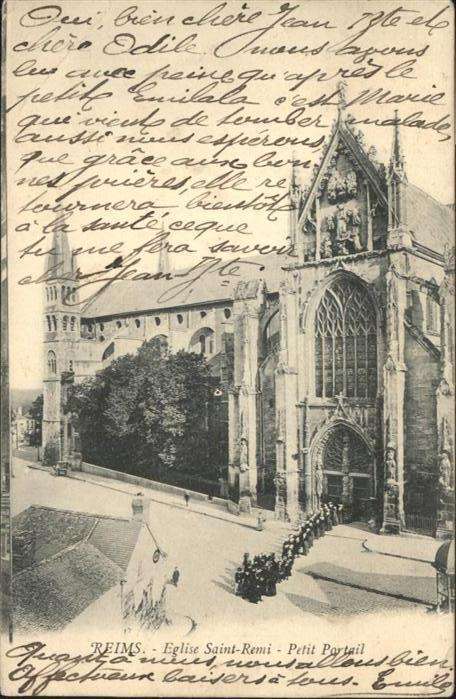 Oui, bien chère Jean Bte et
chère Odile, nous avons
lu avec peine qu'après le
petit Emilala c'est Marie
qui vient de tomber malade,
aussi nous espérons
que grâce aux bon
nes prières, elle re
tournera bientôt
à la santé ce que
tu me fera savoir
cher Jean Bte.
REIMS. - Eglise Saint-Remi - Petit Portail
Quant à nous, nous allons bien
Affectueux baisers à tous. Emila